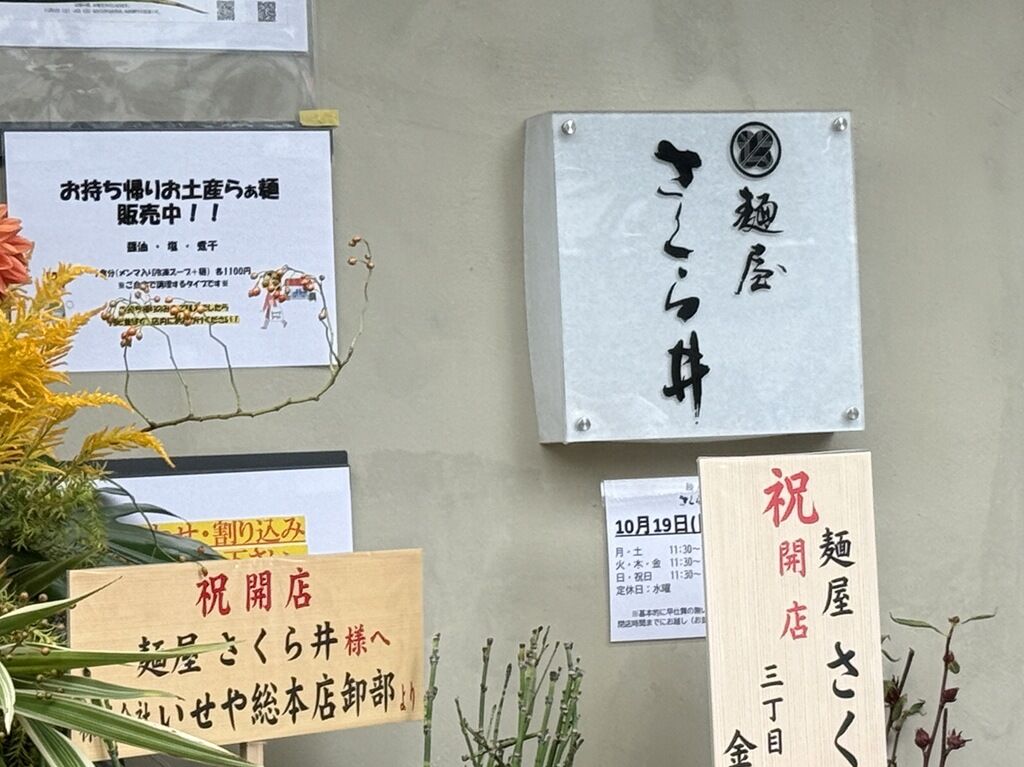 お持ち帰りお土産らぁ麺
販売中！！
醤油・塩・煮干
食分(メンマ入り冷凍スープ＋麺) 各1100円
麺屋
さくら井
・割り込み
10月19日(
月・土 11:30～
火・木・金 11:30～
日・祝日 11:30～
定休日：水曜
※基本的に早仕舞の無い
閉店時間までにお越し
祝開店
麺屋さくら井様へ
会社いせや総本店卸部より
祝開店
麺屋さく
三丁目
金